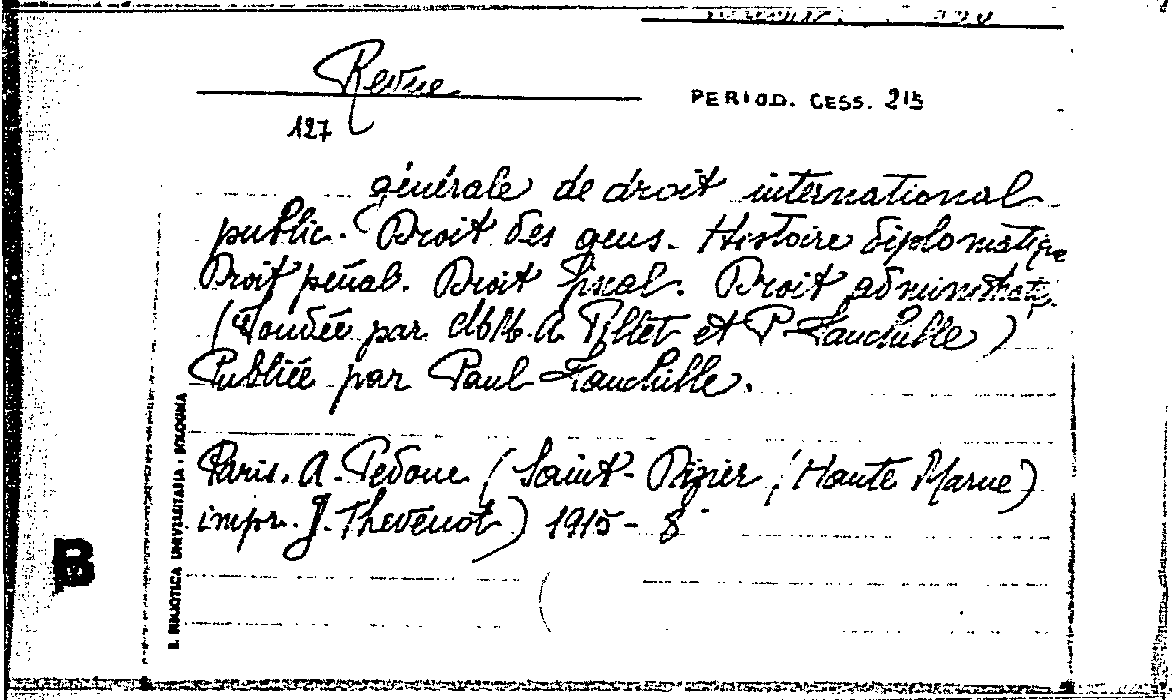 Revue
PERIOD. CESS. 215
127
générale de droit international
public. Droit des gens. Histoire diplomatique
Droit pénal. Droit fiscal. Droit administratif.
(Fondée par MM. A. Pillet et P. Fauchille)
Publiée par Paul Fauchille.
Paris. A. Pedone (Saint-Dizier, Haute Marne)
impr. J. Thevenot) 1915 - 8°
B. BIBLIOTECA UNIVERSITARIA - BOLOGNA
B